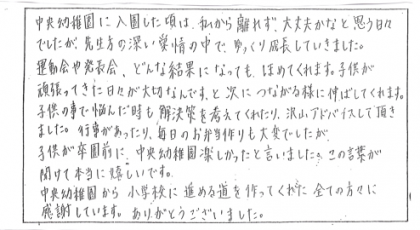 中央幼稚園に入園した頃は、私から離れず、大丈夫かなと思う日々
でしたが、先生方の深い愛情の中で、ゆっくり成長していきました。
運動会や発表会、どんな結果になっても、ほめてくれます。子供が
頑張ってきた日々が大切なんです、と次につながる様に伸ばしてくれます。
子供の事で悩んだ時も解決策を考えてくれたり、沢山アドバイスして頂き
ました。行事があったり、毎日のお弁当作りも大変でしたが
子供が卒園前に、中央幼稚園楽しかったと言いました。この言葉が
聞けて本当に嬉しいです。
中央幼稚園から小学校に進める道を作ってくれた全ての方々に
感謝しています。ありがとうございました。